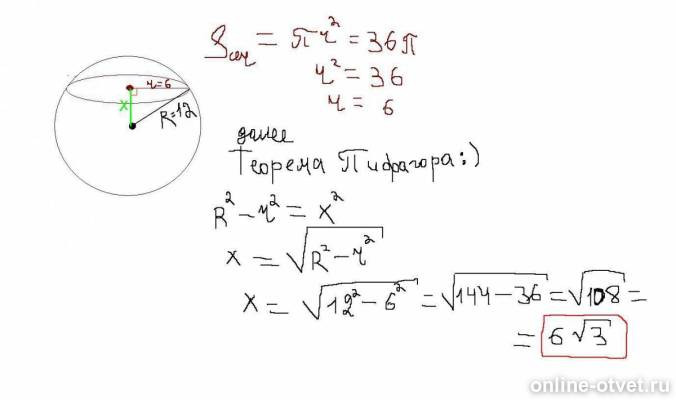 Sсеч = πr² = 36π
r² = 36
r = 6
r=6
x
R=12
далее
Теорема Пифагора:)
R² - r² = x²
x = √(R² - r²)
x = √(12² - 6²) = √(144 - 36) = √108 =
= 6√3
online-otvet.ru